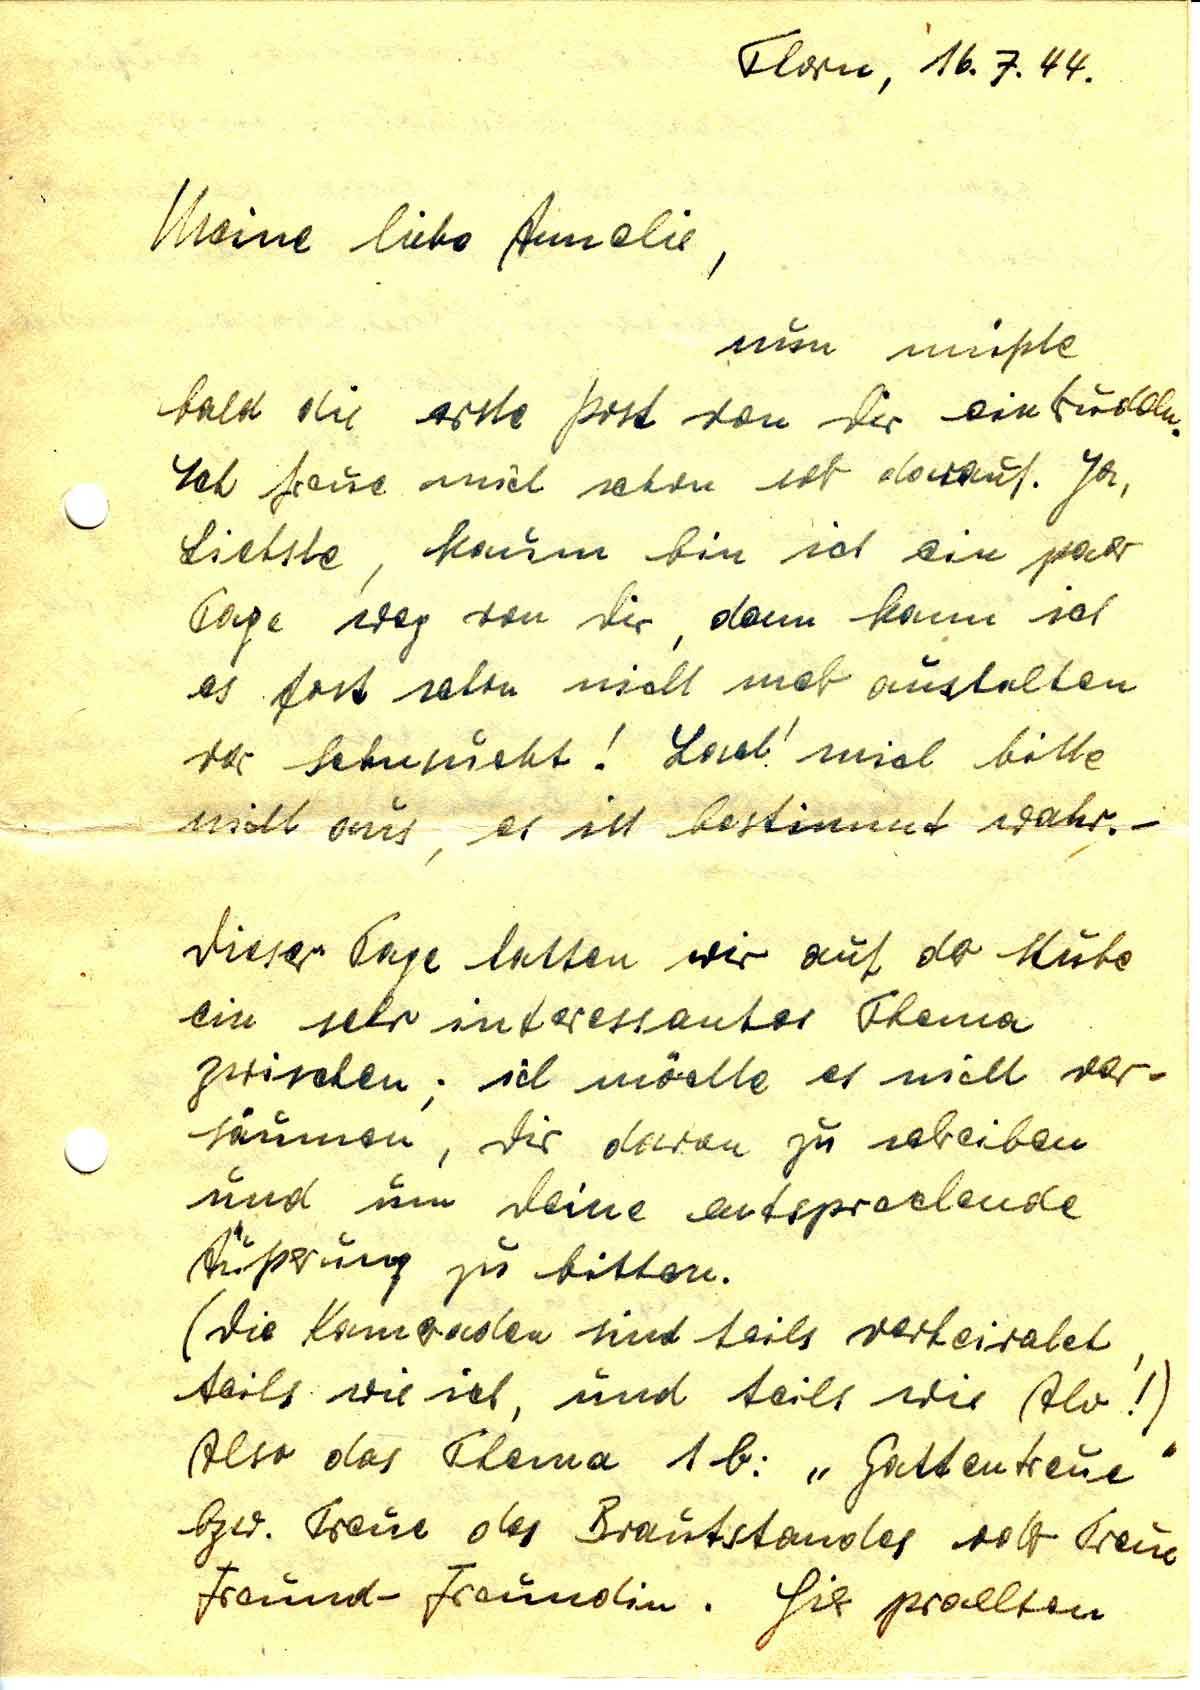 Thorn, 16.7.44.
Meine liebe Annelie,
nun müßte
bald die erste Post von Dir eintrudeln.
Ich freue mich schon sehr darauf. Ja,
Liebste, kaum bin ich ein paar
Tage weg von Dir, dann kann ich
es fast schon nicht mehr aushalten
vor Sehnsucht! Lach' mich bitte
nicht aus, es ist bestimmt wahr.–
Dieser Tage hatten wir auf der Stube
ein sehr interessantes Thema
zwischen; ich möchte es nicht ver-
säumen, Dir davon zu schreiben
und um Deine entsprechende
Äußerung zu bitten.
(Die Kameraden sind teils verheiratet,
teils wie ich, und teils wie Alo!)
Also das Thema 1 b: „Gattentreue"
bzw. Treue des Brautstandes oder Treue
Freund-Freundin. Hier prallten